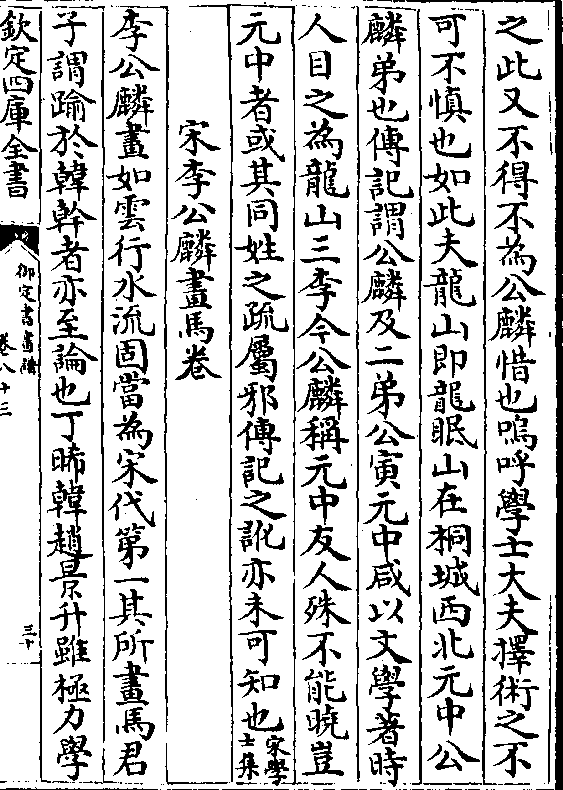 之此又不得不為公麟惜也嗚呼學士大夫擇術之不
可不慎也如此夫龍山即龍眠山在桐城西北元中公
麟弟也傳記謂公麟及二弟公寅元中咸以文學著時
人目之為龍山三李今公麟稱元中友人殊不能曉豈
元中者或其同姓之疏屬邪傳記之訛亦未可知也宋學士集
宋李公麟畫馬卷
李公麟畫如雲行水流固當為宋代第一其所畫馬君
子謂踰於韓幹者亦至論也丁晞韓趙景升雖極力學
欽定四庫全書
御定書畫譜
卷八十三
三十